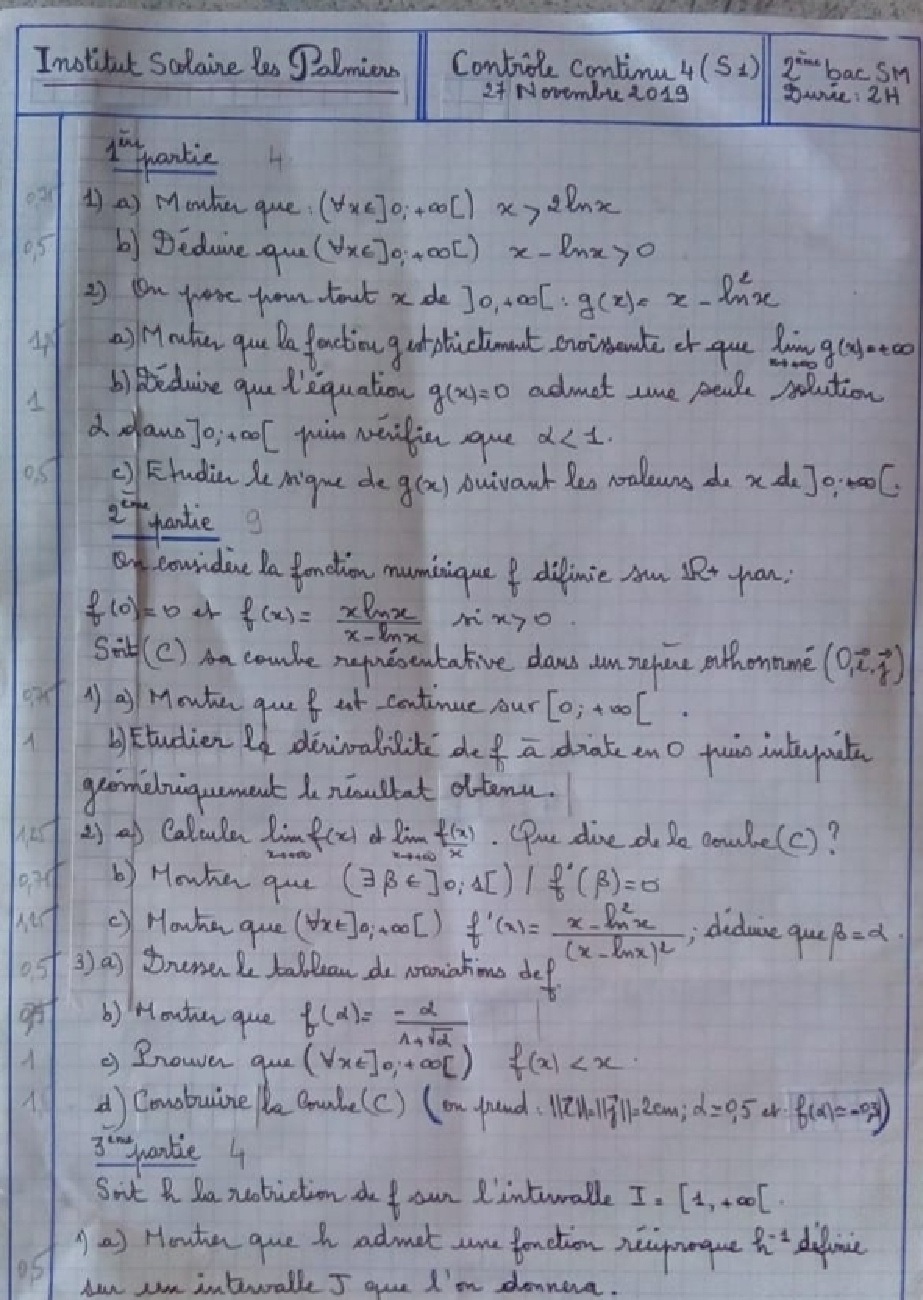 Institut Scolaire les Palmiers
Contrôle Continu 4 (S1)
27 Novembre 2019
2ème bac SM
Durée : 2H
1ère partie 4
0,75 1) a) Montrer que : (∀x∈]0;+∞[) x > 2lnx
0,5 b) Déduire que (∀x∈]0;+∞[) x - lnx > 0
2) On pose pour tout x de ]0,+∞[ : g(x) = x - ln²x
a) Montrer que la fonction g est strictement croissante et que lim g(x) = +∞
x→+∞
1 b) Déduire que l'équation g(x)=0 admet une seule solution
α dans ]0;+∞[ puis vérifier que α < 1.
0,5 c) Etudier le signe de g(x) suivant les valeurs de x de ]0;+∞[.
2ème partie 9
On considère la fonction numérique f définie sur IR+ par :
f(0)=0 et f(x) = xlnx / (x-lnx) si x > 0.
Soit (C) sa courbe représentative dans un repère orthonormé (O,i⃗,j⃗)
0,75 1) a) Montrer que f est continue sur [0;+∞[ .
1 b) Etudier la dérivabilité de f à droite en 0 puis interpréter
géométriquement le résultat obtenu.
1,25 2) a) Calculer lim f(x) et lim f(x)/x . Que dire de la courbe (C) ?
x→+∞ x→+∞
0,75 b) Montrer que (∃β∈]0;1[) / f'(β)=0
1,25 c) Montrer que (∀x∈]0;+∞[) f'(x) = (x - ln²x) / (x - lnx)² ; déduire que β=α.
0,5 3) a) Dresser le tableau de variations de f
b) Montrer que f(α) = -α / (1+√α)
1 c) Prouver que (∀x∈]0;+∞[) f(x) < x.
1 d) Construire la courbe (C) (on prend : ||i⃗||=||j⃗||=2cm ; α=0,5 et f(α)=-0,3)
3ème partie 4
Soit h la restriction de f sur l'intervalle I = [1,+∞[.
0,5 1) a) Montrer que h admet une fonction réciproque h⁻¹ définie
sur un intervalle J que l'on donnera.